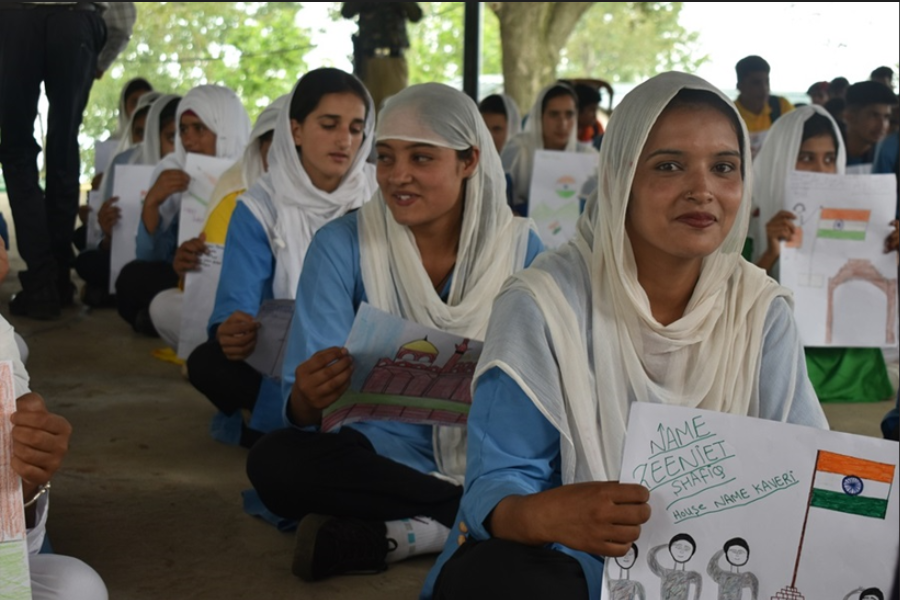 NAME
ZEENIET
SHAFIQ
HOUSE NAME KAVERI